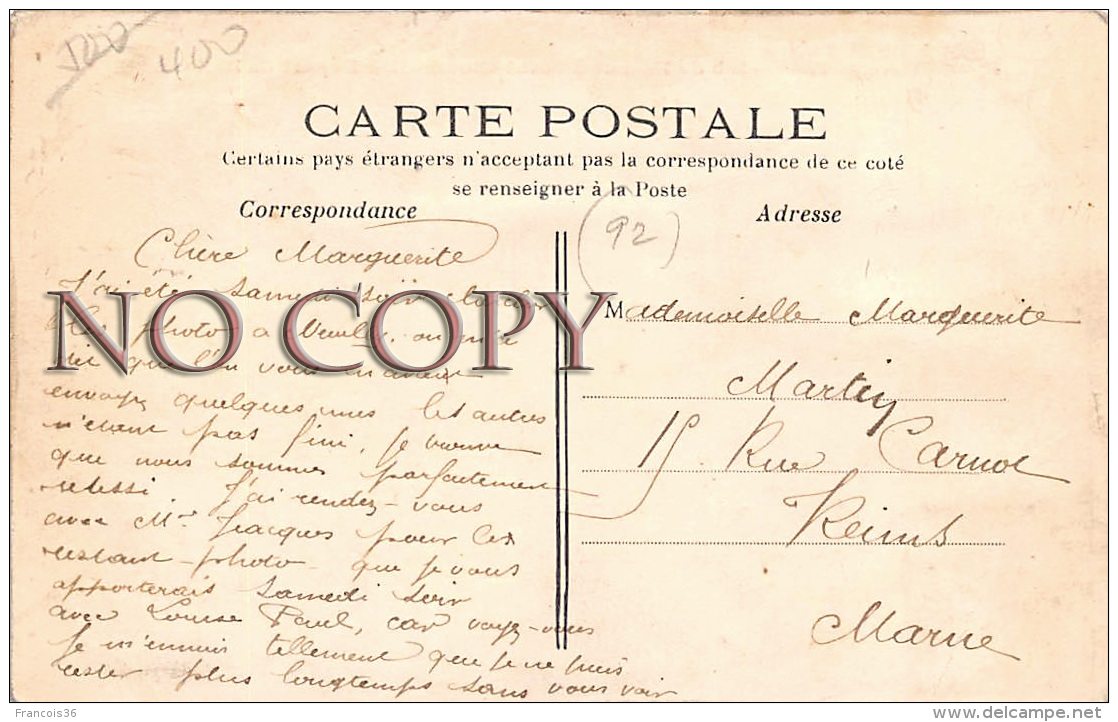 500
400
CARTE POSTALE
Certains pays étrangers n'acceptant pas la correspondance de ce coté
se renseigner à la Poste
Correspondance
Adresse
(92)
Chère Marguerite
J'ai été Samedi soir chercher
les photo a Neuilly, on
que l'on vous
envoyé quelques unes les autres
n'étant pas fini, je trouve
que nous sommes parfaitement
réussi. J'ai rendez-vous
avec Mr Jacques pour les
restant-photo que je vous
apporterais Samedi soir
avec Louise Paul, car voyez-vous
Je m'ennuis tellement que je ne puis
rester plus longtemps sans vous voir
NO COPY
Mademoiselle Marguerite
Martin
15 Rue Carnot
Reims
Marne
Francois36
delcampe.net